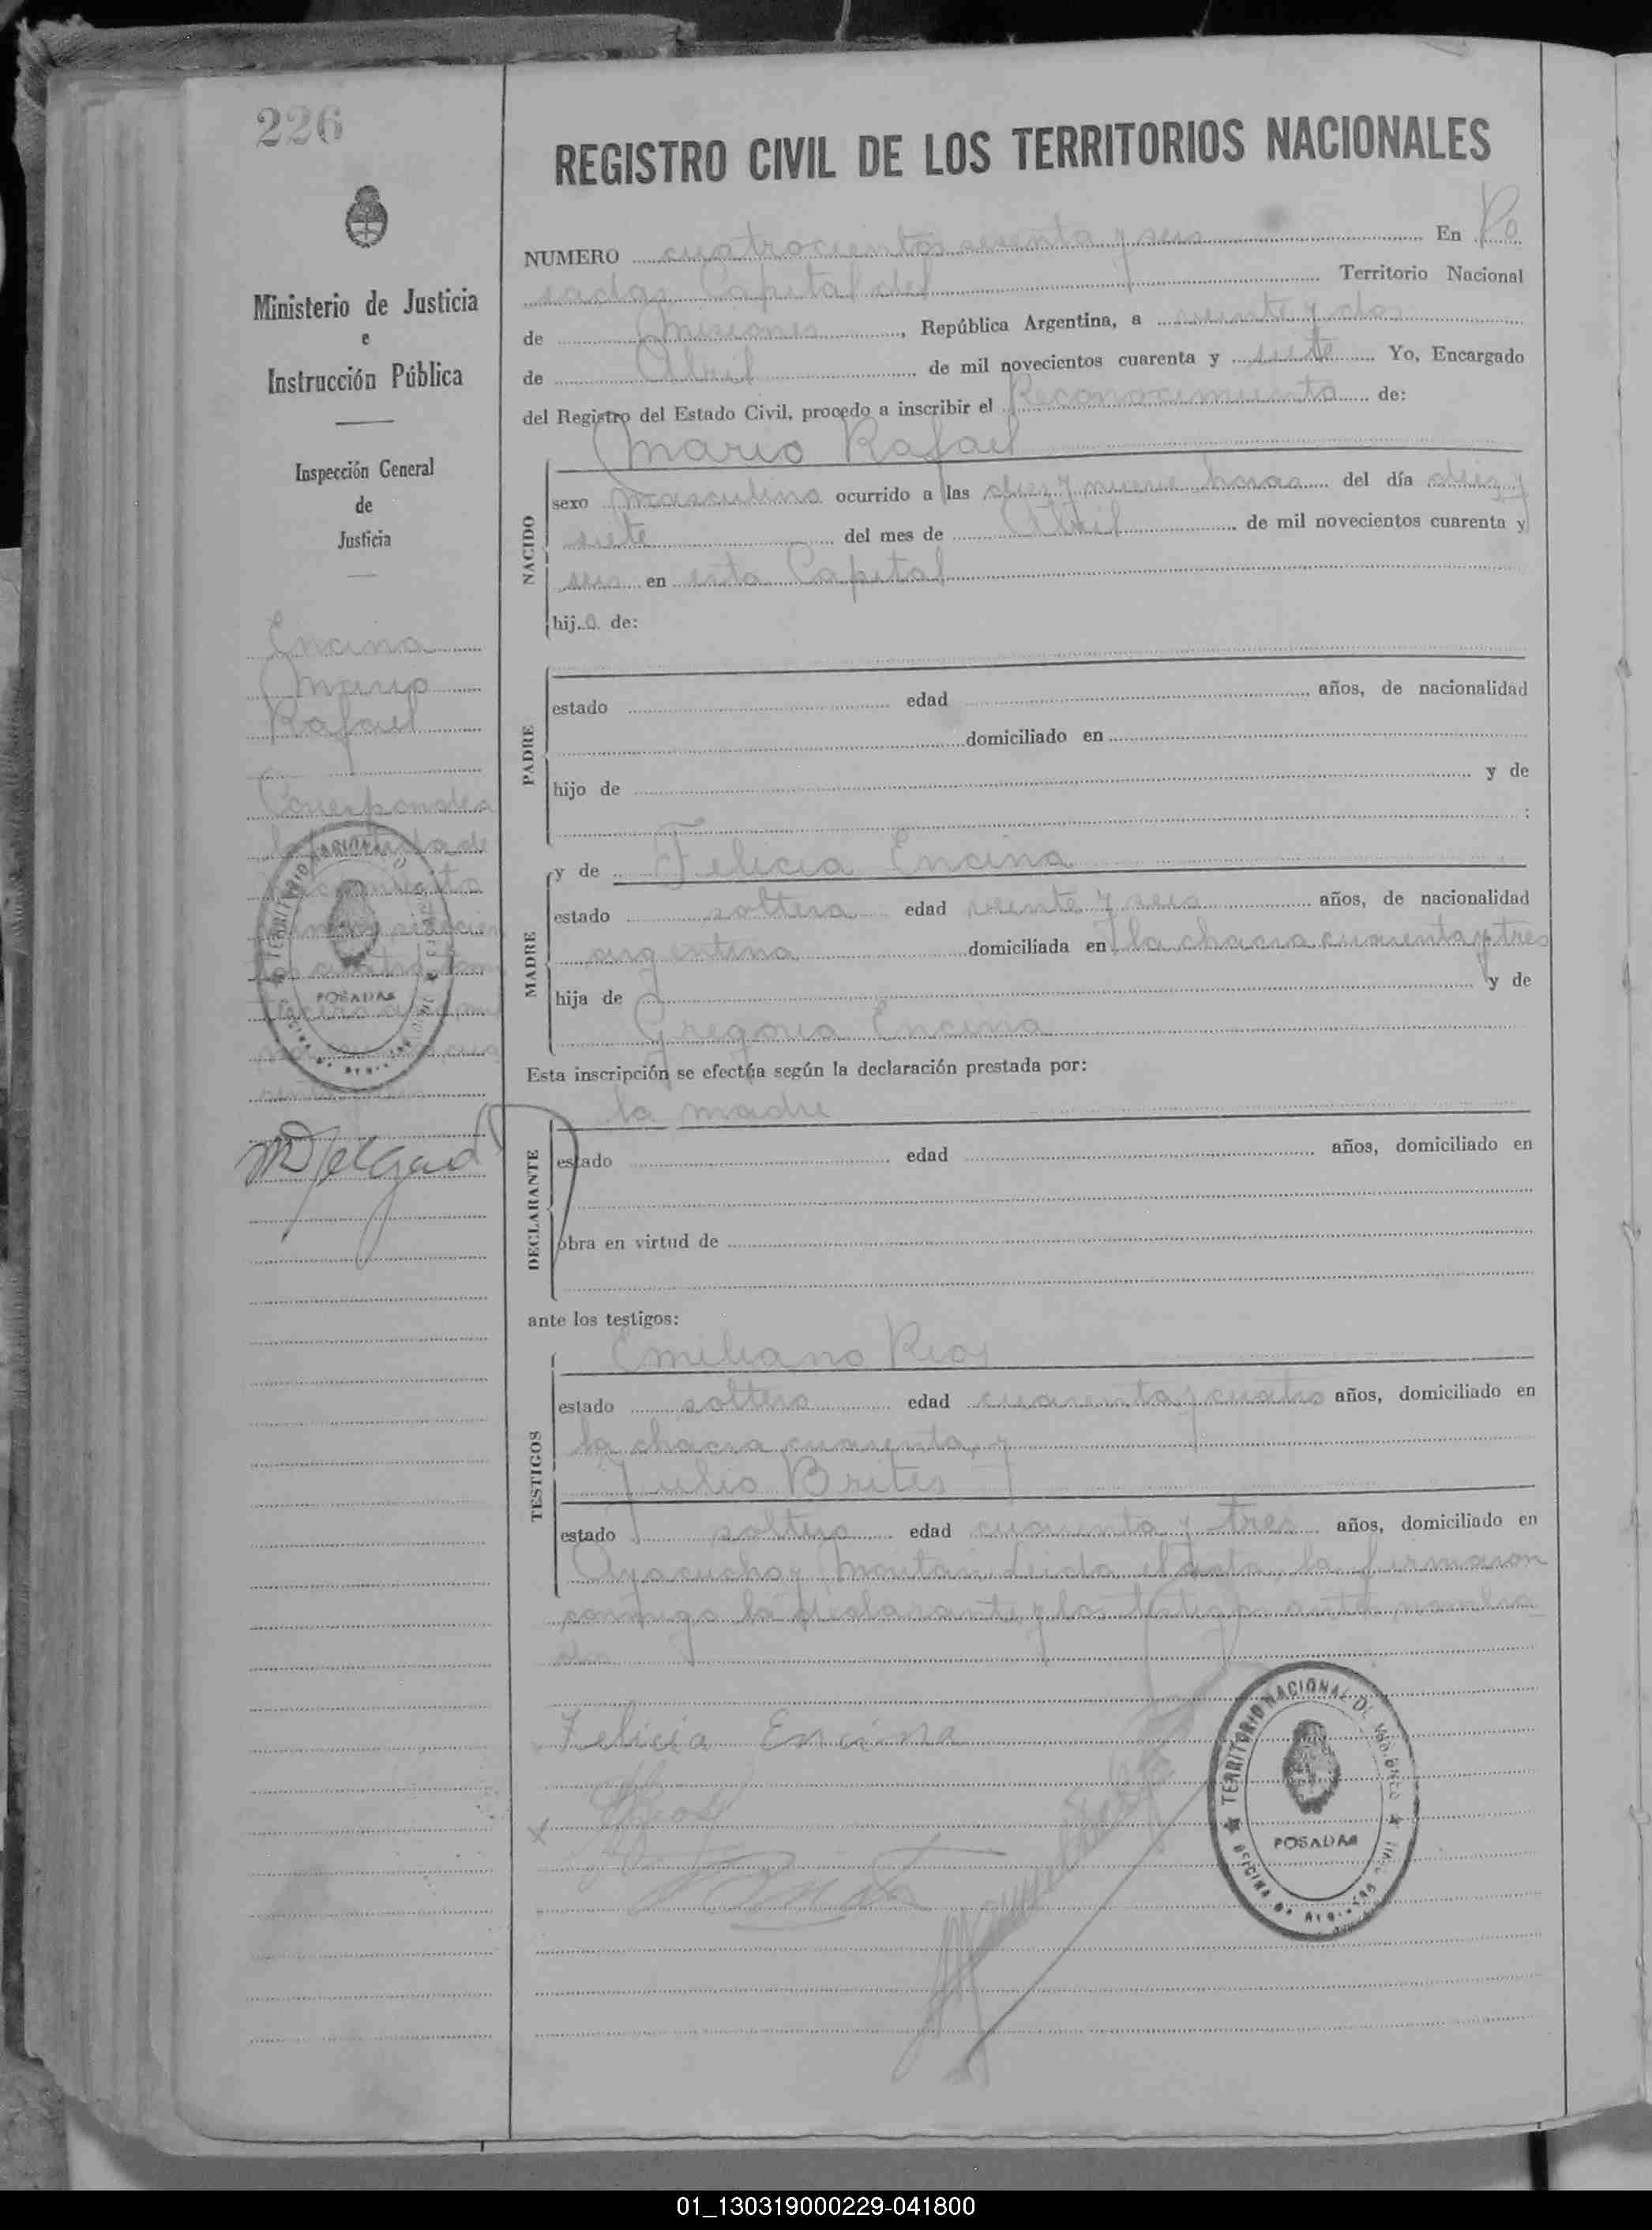 226
REGISTRO CIVIL DE LOS TERRITORIOS NACIONALES
Ministerio de Justicia
e
Instrucción Pública
Inspección General
de
Justicia
Encina
Mario
Rafael
Corresponde a
M Delgad
NUMERO cuatrocientos sesenta y seis En Po
sadas Capital del Territorio Nacional
de Misiones, República Argentina, a veinte y dos
de Abril de mil novecientos cuarenta y siete Yo, Encargado
del Registro del Estado Civil, procedo a inscribir el Reconocimiento de:
Mario Rafael
NACIDO
sexo masculino ocurrido a las diez y nueve horas del día diez y
siete del mes de Abril de mil novecientos cuarenta y
seis en esta Capital
hijo de:
PADRE
estado edad años, de nacionalidad
domiciliado en
hijo de y de
:
y de Felicia Encina
MADRE
estado soltera edad veinte y seis años, de nacionalidad
argentina domiciliada en la chacra cuarenta y tres
hija de y de
Gregoria Encina
Esta inscripción se efectúa según la declaración prestada por:
la madre
DECLARANTE
estado edad años, domiciliado en
obra en virtud de
ante los testigos:
Emiliano Rios
TESTIGOS
estado soltero edad cuarenta y cuatro años, domiciliado en
la chacra cuarenta, y
Julio Brites
estado soltero edad cuarenta y tres años, domiciliado en
Ayacucho y Leida el acta, la firmaron
conmigo la declarante y los testigos antes nombra
dos
Felicia Encina
TERRITORIO NACIONAL DE MISIONES
POSADAS
01_130319000229-041800